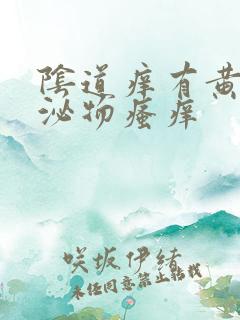 陰道痒有黄
泌物瘙痒
咲坂伊緒
未经同意禁止转载